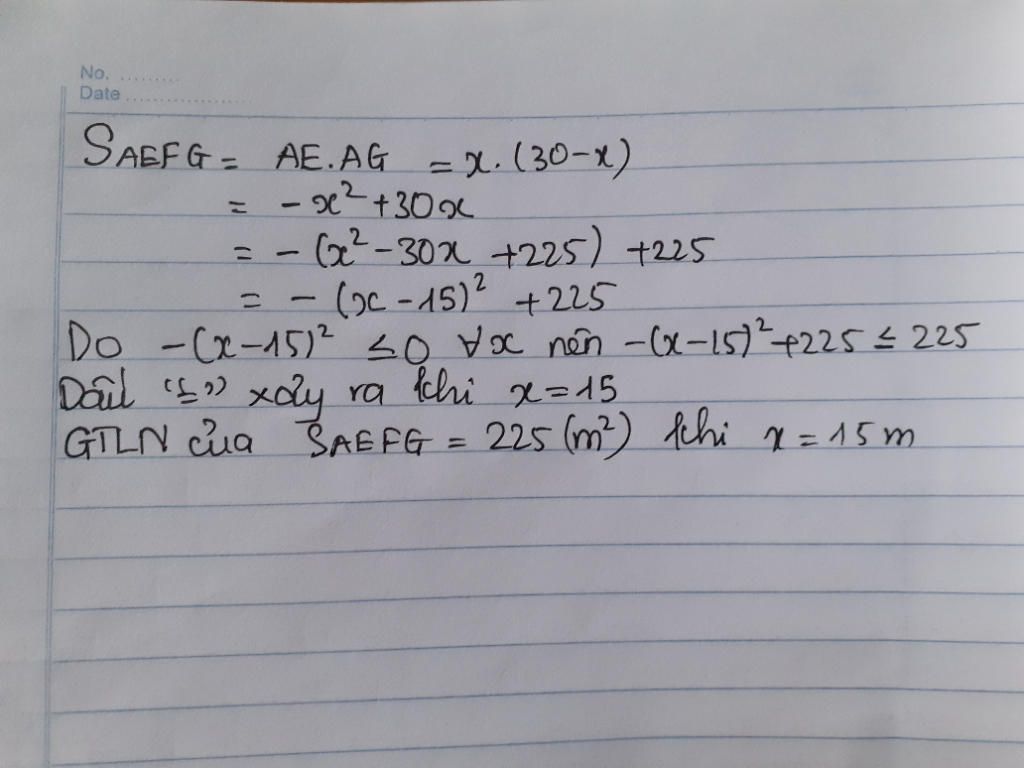 No. .........
Date ...................
SAEFG = AE.AG = x.(30-x)
= -x² +30x
= -(x²-30x +225) +225
= -(x-15)² +225
Do -(x-15)² ≤0 ∀x nên -(x-15)²+225 ≤ 225
Dấu "=" xảy ra khi x=15
GTLN của SAEFG = 225 (m²) khi x = 15 m